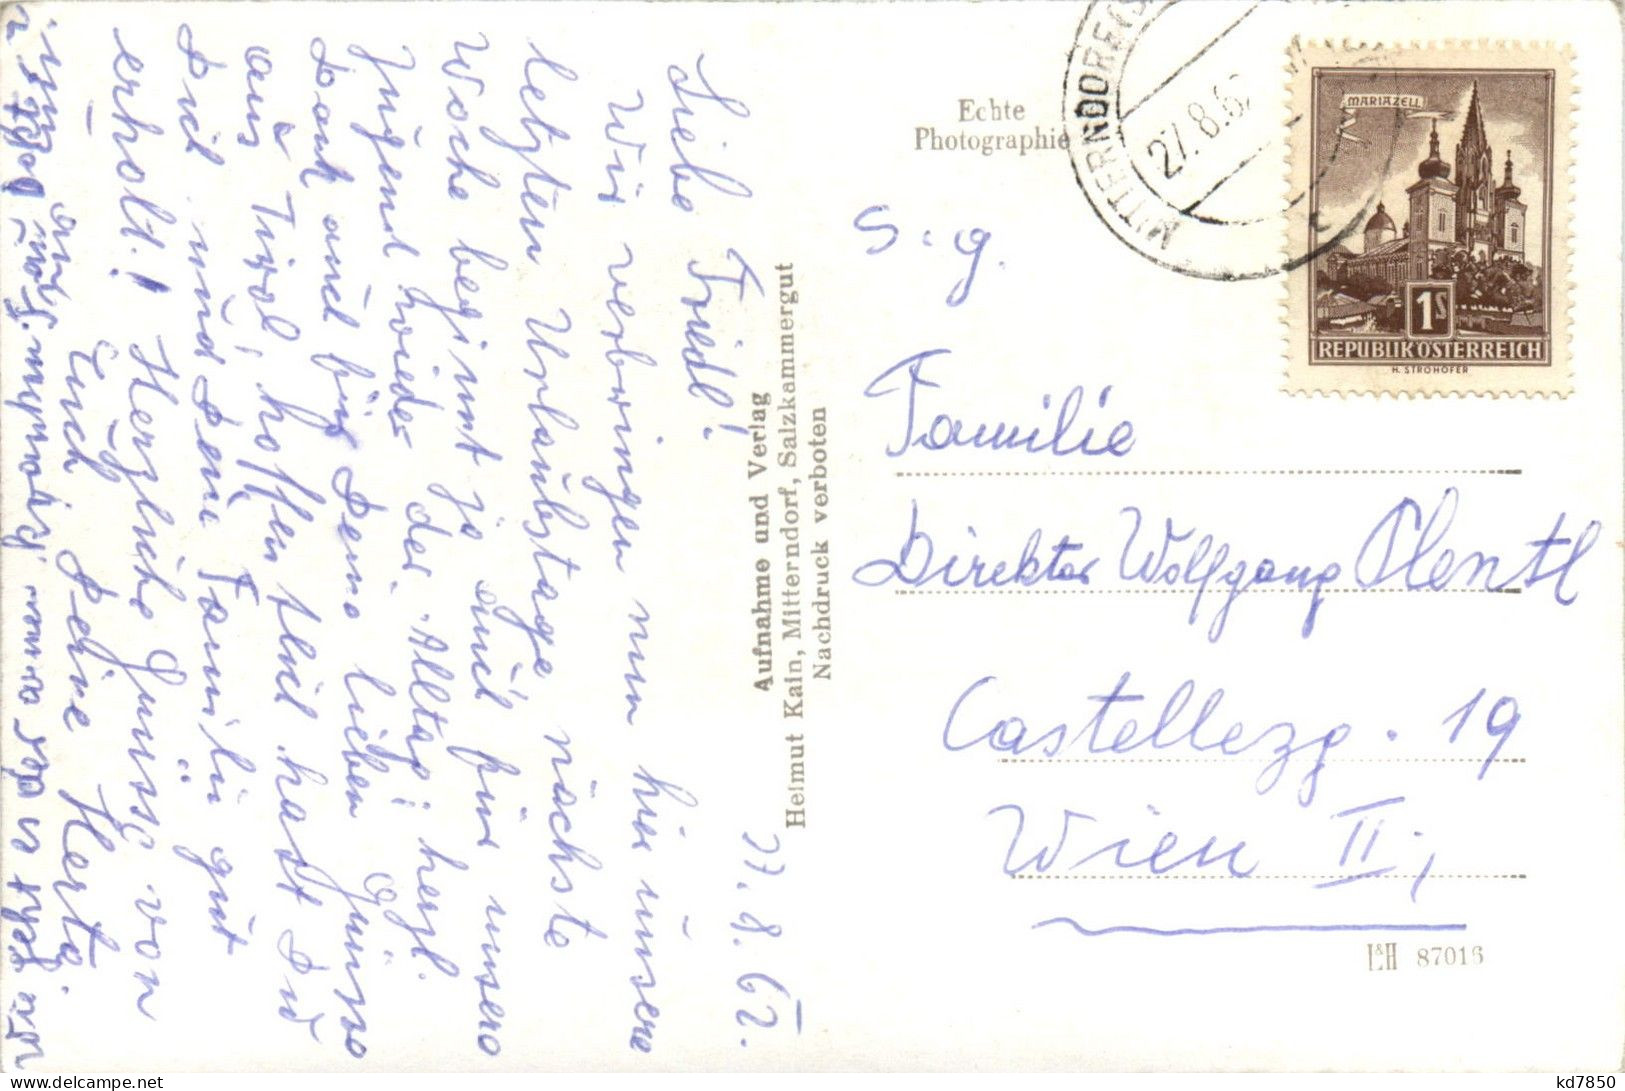 27.8.62.
Liebe Friedl!
Wir verbringen nun hier unsere
letzten Urlaubstage, nächste
Woche beginnt ja auch für unsere
Jugend wieder der "Alltag"; herzl.
Dank auch für Deine lieben Grüsse
aus Tirol, hoffentlich hast Du
Dich und Deine Familie gut
erholt! Herzliche Grüsse von
Euch Deine Herta.
Aufnahme und Verlag
Helmut Kain, Mitterndorf, Salzkammergut
Nachdruck verboten
Echte
Photographie
MITTERNDORF
27.8.62
MARIAZELL
1S
REPUBLIK ÖSTERREICH
H. STROHOFER
S. g.
Familie
Direktor Wolfgang Plentl
Castellezg. 19
Wien II,
L&H 87016
kd7850